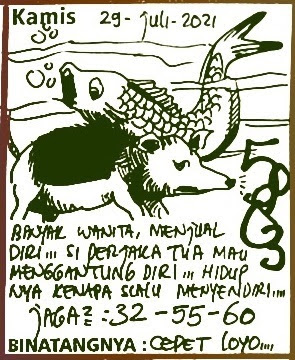 Kamis 29-juli-2021
BANYAK WANITA, MENJUAL
DIRI,,, SI PERJAKA TUA MAU
MENGGANTUNG DIRI,,, HIDUP
NYA KENAPA SLALU MENYENDIRI,,,,
JAGA2 : 32-55-60
BINATANGNYA : CEPET LOYO,,,,